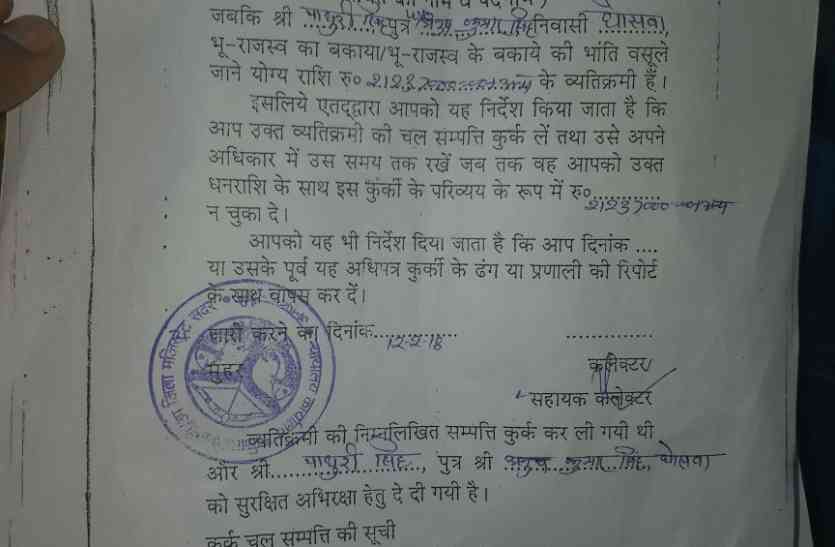 जबकि श्री माधुरी सिंह पुत्र कुमार सिंह निवासी घोसवा,
भू-राजस्व का बकाया/भू-राजस्व के बकाये की भांति वसूले
जाने योग्य राशि रु० के व्यतिक्रमी हैं।
इसलिये एतद्द्वारा आपको यह निर्देश किया जाता है कि
आप उक्त व्यतिक्रमी की चल सम्पत्ति कुर्क लें तथा उसे अपने
अधिकार में उस समय तक रखें जब तक वह आपको उक्त
धनराशि के साथ इस कुर्की के परिव्यय के रूप में रु०............
न चुका दे।
आपको यह भी निर्देश दिया जाता है कि आप दिनांक ....
या उसके पूर्व यह अधिपत्र कुर्की के ढंग या प्रणाली की रिपोर्ट
के साथ वापस कर दें।
जारी करने का दिनांक............ 12-2-18 ............
मुहर कलेक्टर
सहायक कलेक्टर
व्यतिक्रमी की निम्नलिखित सम्पत्ति कुर्क कर ली गयी थी
और श्री माधुरी सिंह, पुत्र श्री कुमार सिंह, घोसवा
को सुरक्षित अभिरक्षा हेतु दे दी गयी है।
कुर्क चल सम्पत्ति की सूची